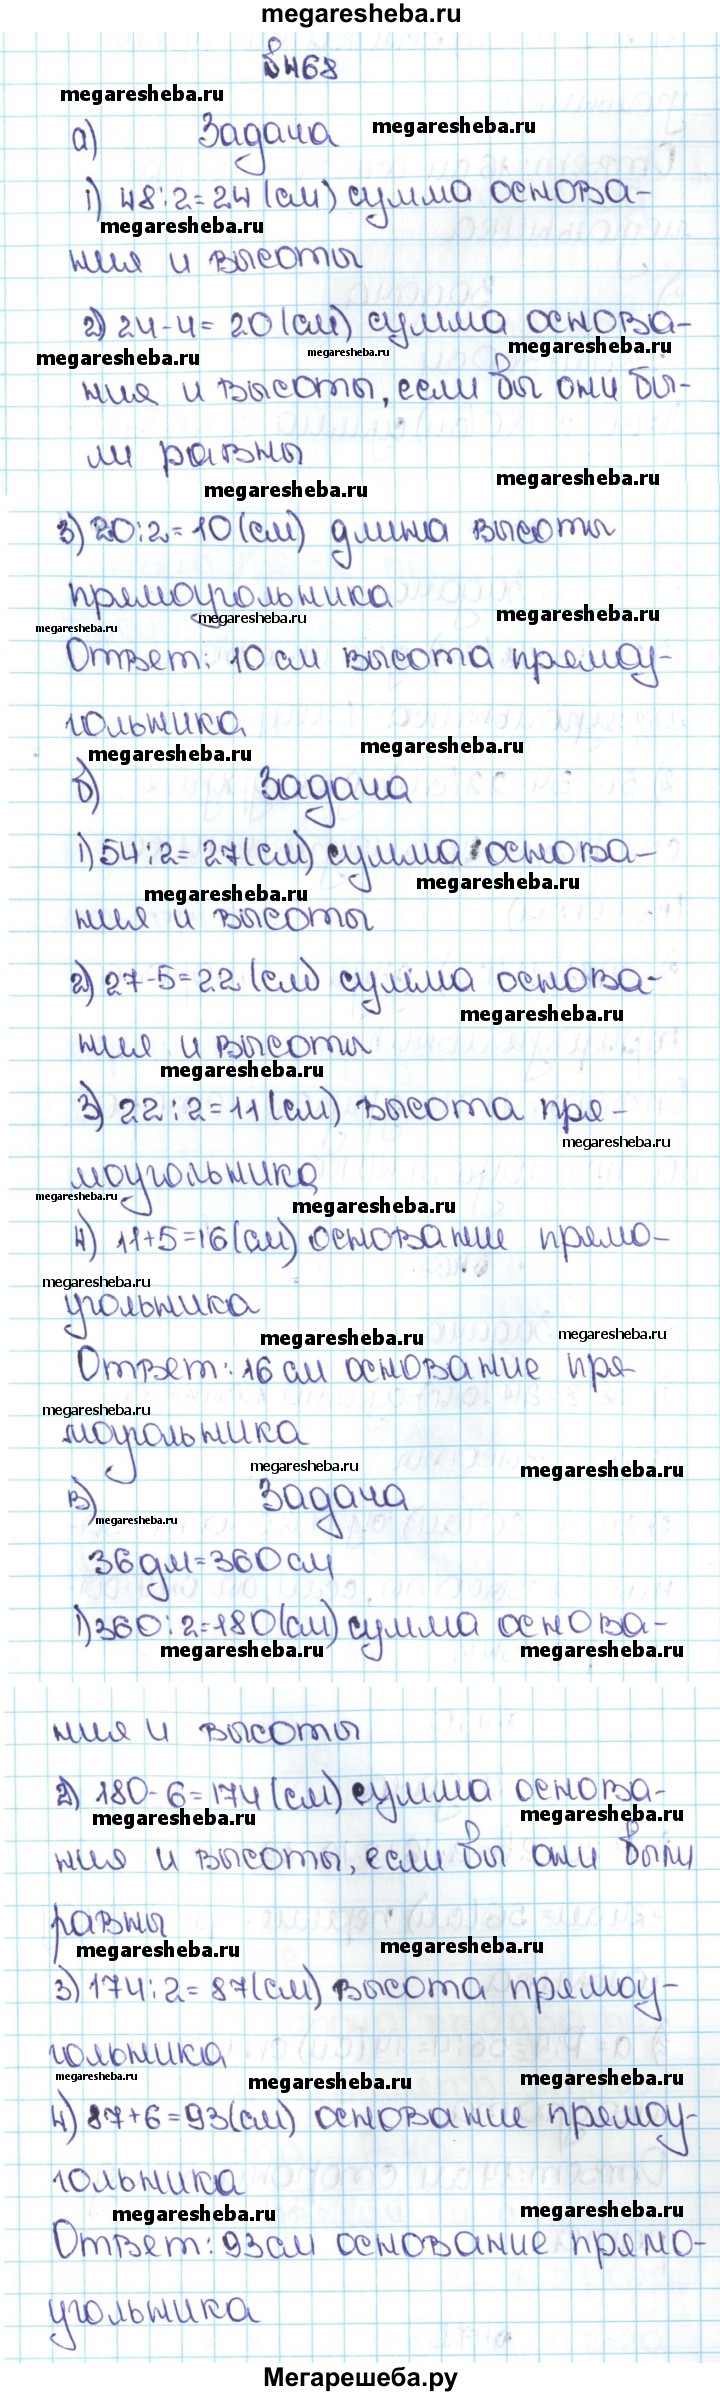 megaresheba.ru
№468
megaresheba.ru
а) Задача megaresheba.ru
1) 48:2=24 (см) сумма основа-
megaresheba.ru
ния и высоты
2) 24-4=20(см) сумма основа-
megaresheba.ru megaresheba.ru megaresheba.ru
ния и высоты, если бы они бы-
ли равны
megaresheba.ru megaresheba.ru
3) 20:2=10(см) длина высоты
прямоугольника
megaresheba.ru megaresheba.ru megaresheba.ru
Ответ: 10 см высота прямоу-
гольника
megaresheba.ru megaresheba.ru
б) Задача
1) 54:2=27(см) сумма основа-
megaresheba.ru megaresheba.ru
ния и высоты
2) 27-5=22(см) сумма основа-
megaresheba.ru
ния и высоты
megaresheba.ru
3) 22:2=11(см) высота пря-
megaresheba.ru
моугольника
megaresheba.ru megaresheba.ru
4) 11+5=16(см) основание прямо-
megaresheba.ru
угольника
megaresheba.ru megaresheba.ru
Ответ: 16 см основание пря-
megaresheba.ru
моугольника
megaresheba.ru megaresheba.ru
в) Задача
megaresheba.ru
36дм=360см
1) 360:2=180(см) сумма основа-
megaresheba.ru megaresheba.ru
ния и высоты
2) 180-6=174(см) сумма основа-
megaresheba.ru megaresheba.ru
ния и высоты, если бы они были
равны
megaresheba.ru megaresheba.ru
3) 174:2=87(см) высота прямоу-
гольника
megaresheba.ru megaresheba.ru
4) 87+6=93(см) основание прямоу-
гольника
megaresheba.ru megaresheba.ru
Ответ: 93см основание прямо-
угольника
Мегарешеба.ру